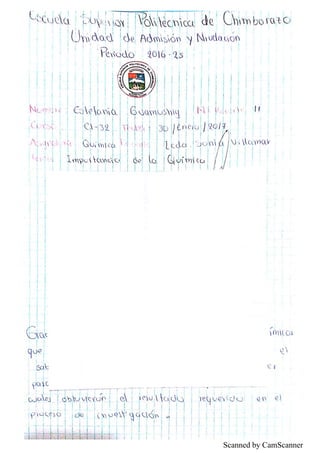 Escuela Superior Politécnica de Chimborazo
Unidad de Admisión y Nivelación
Periodo 2016-2S
Estefania Guamushig 11
CI-32 30/Enero/2017
Química Lcda. Sonia Villamar
Importancia de la Química
Grac ímica
que el
sab
para
cuales obtuvieron el resultado requerido en el
proceso de investigación.
Scanned by CamScanner